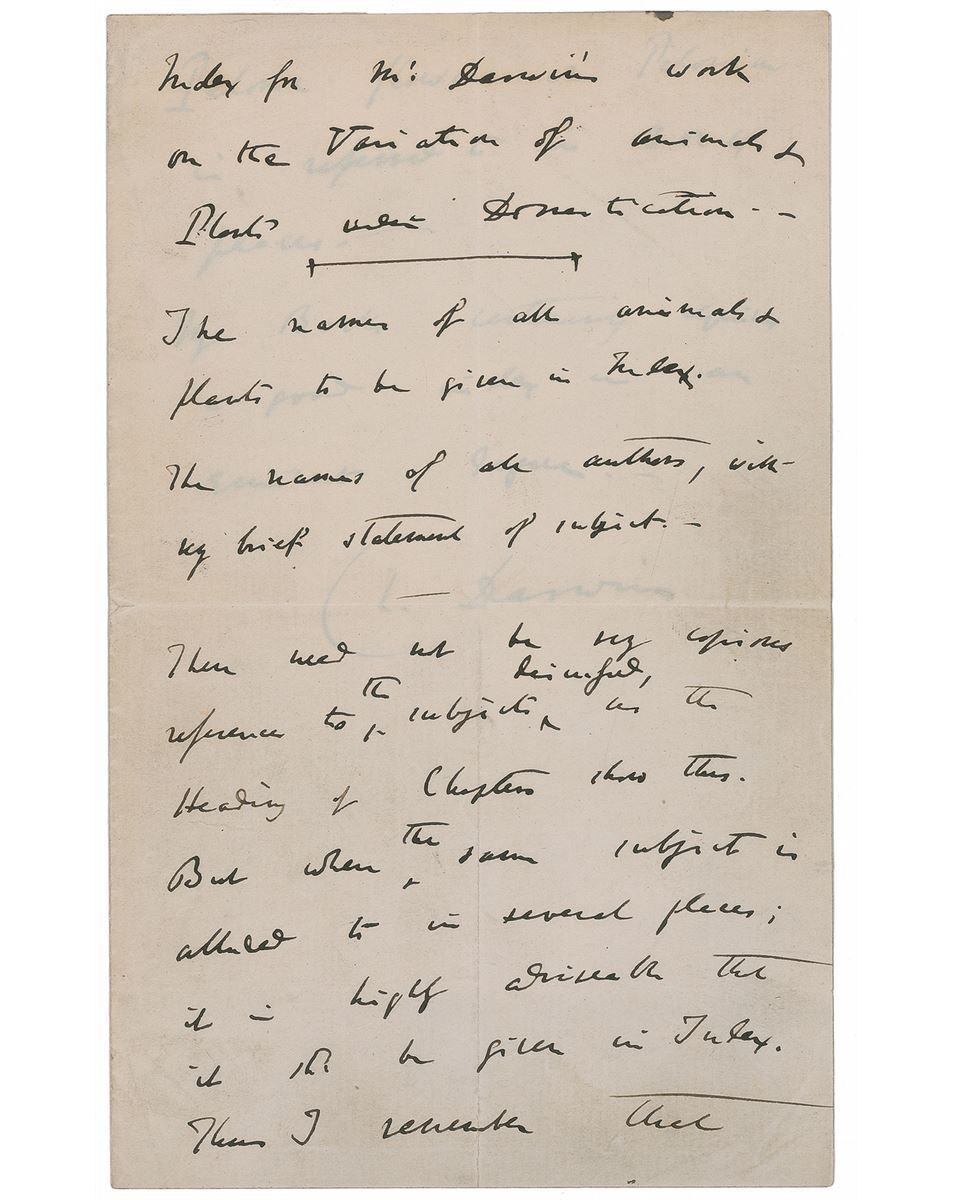 Index for Mr. Darwin's work
on the Variation of animals &
Plants under Domestication - -
The names of all animals &
plants to be given in Index.
The names of all authors, with
very brief statement of subject. -
There need not be very copious
reference to the subjects discussed, as the
Heading of Chapters show this.
But when the same subject is
alluded to in several places;
it is highly adviseable that
it shd be given in Index.
Thus I remember that